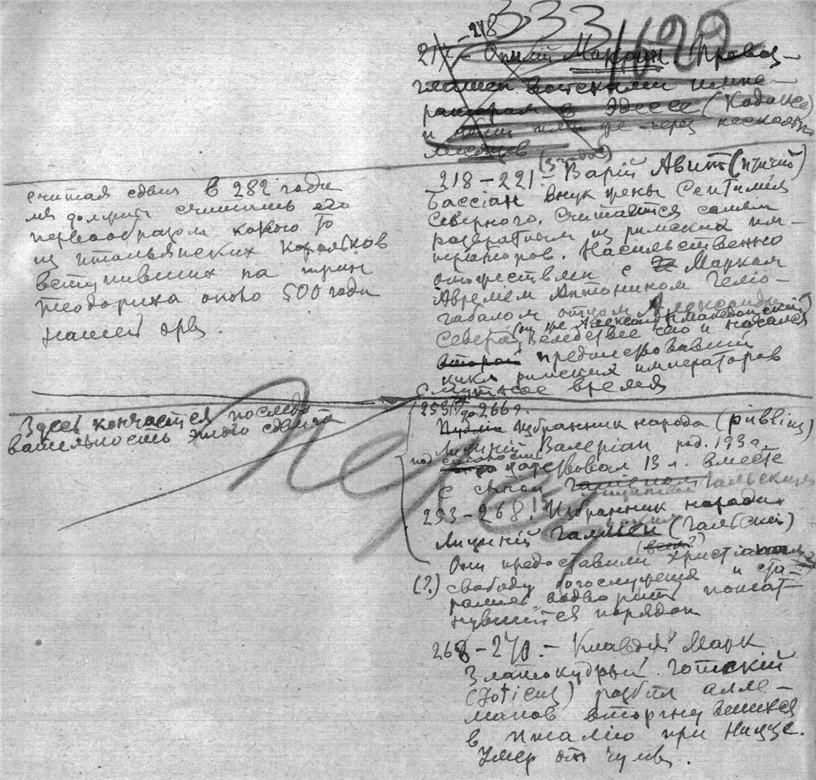 333/622
217-218
Опилій Макрин (провоз-
глашен войсками импе-
ратором в Эдессе (
и убит ими же через несколько
месяцев
(3 года)
218-221.- Варій Авит (птичий)
Бассіан внук жены Септимія
Северного. Считается самым
развратным из римских им-
ператоров. Насильственно
отожествлен с Марком
Аврелием Антонином Геліо-
габалом отцом Александра
Севера (он же Александр Македонский)
вследствие чего и начался
второй предшествовавший
цикл римских императоров
Смутное время
считая сдвиг в 282 года
мы должны считать его
первообразом какого то
из итальянских корольков
вступивших на трон
Теодориха около 500 года
нашей эры.
Здесь кончается последо
вательность этого сдвига
Перец
253 до 266 г.
избранник народа (publius)
Лициній Валеріан род. 193 г.
царствовал 13 л. вместе
с сыном
253-268. Избранник народа
Лициній Галлиен (галльский)
Они предоставили (всем?) христіанам
(?) свободу богослужения и ста-
рались водворить пошат-
нувшийся порядок
268-270.- Клавдій Марк
Златокудрый. Готский
(Goticus) разбил алле-
манов вторгнувшихся
в Италію при Ницце.
Умер от чумы.